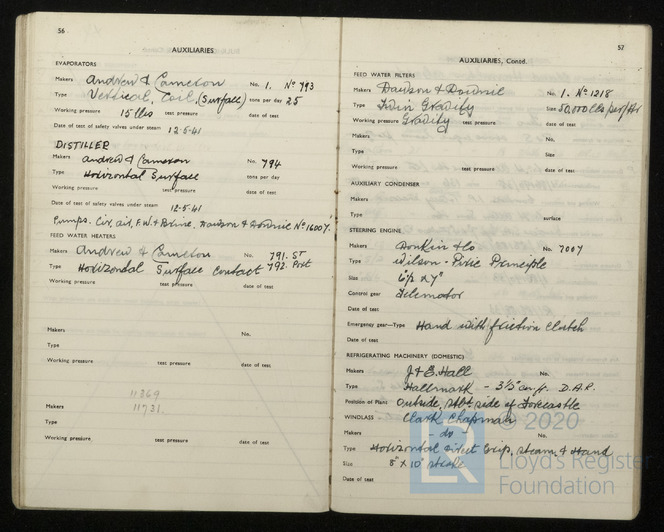 56
AUXILIARIES
EVAPORATORS
Makers Andrew & Cameron No. 1. No 793
Type Vertical, Coil, (Surface) tons per day 25
Working pressure 15 lbs test pressure date of test
Date of test of safety valves under steam 12-5-41
DISTILLER
Makers Andrew & Cameron No. 794
Type Horizontal Surface tons per day
Working pressure test pressure date of test
Date of test of safety valves under steam 12-5-41
Pumps. Cir, air, F.W. & Brine. Dawson & Downie No 16007.
FEED WATER HEATERS
Makers Andrew & Cameron 791. ST
Type Horizontal Surface Contact 792. Port
Working pressure test pressure date of test
Makers No.
Type
Working pressure test pressure date of test
11869
Makers 11731
Type
Working pressure test pressure date of test
57
AUXILIARIES, Contd.
FEED WATER FILTERS
Makers Dawson & Downie No. 1. No 1218
Type Twin Gravity Size 50,000 lbs per/Hr
Working pressure Gravity test pressure date of test
Makers No.
Type Size
Working pressure test pressure date of test
AUXILIARY CONDENSER
Makers
Type surface
STEERING ENGINE
Makers Donkin & Co No. 7007
Type Wilson - Pirie Principle
Size 6½ x 7"
Control gear Telemotor
Date of test
Emergency gear—Type Hand with friction clutch
Date of test
REFRIGERATING MACHINERY (DOMESTIC)
Makers J & E. Hall No.
Type Hallmark - D.A.P.
Position of Plant Outside, side of Forecastle
WINDLASS - Clark Chapman
Makers - do No.
Type Horizontal Direct Grip, Steam, & Hand
Size 8" x 10" stroke
Date of test
LR
© 2020
Lloyd's Register
Foundation